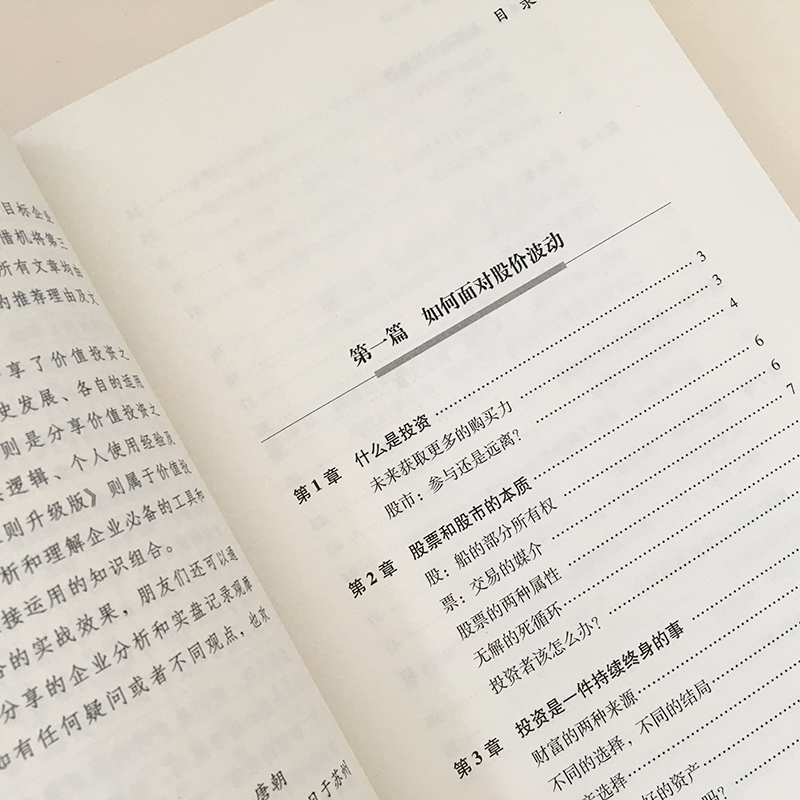 目标企业
借机将第三
所有文章均由
的推荐理由及文
享了价值投资之
史发展、各自的适用
则是分享价值投资之
逻辑、个人使用经验及
则升级版》则属于价值投
析和理解企业必备的工具和
接运用的知识组合。
的实战效果，朋友们还可以通
分享的企业分析和实盘记录观摩
如有任何疑问或者不同观点，也欢
唐朝
日于苏州
目 录
第一篇 如何面对股价波动
第1章 什么是投资 3
未来获取更多的购买力 3
股市：参与还是远离？ 4
第2章 股票和股市的本质 6
股：船的部分所有权 6
票：交易的媒介 7
股票的两种属性
无解的死循环
投资者该怎么办？
第3章 投资是一件持续终身的事
财富的两种来源
不同的选择，不同的结局
产选择
好的资产
吗？